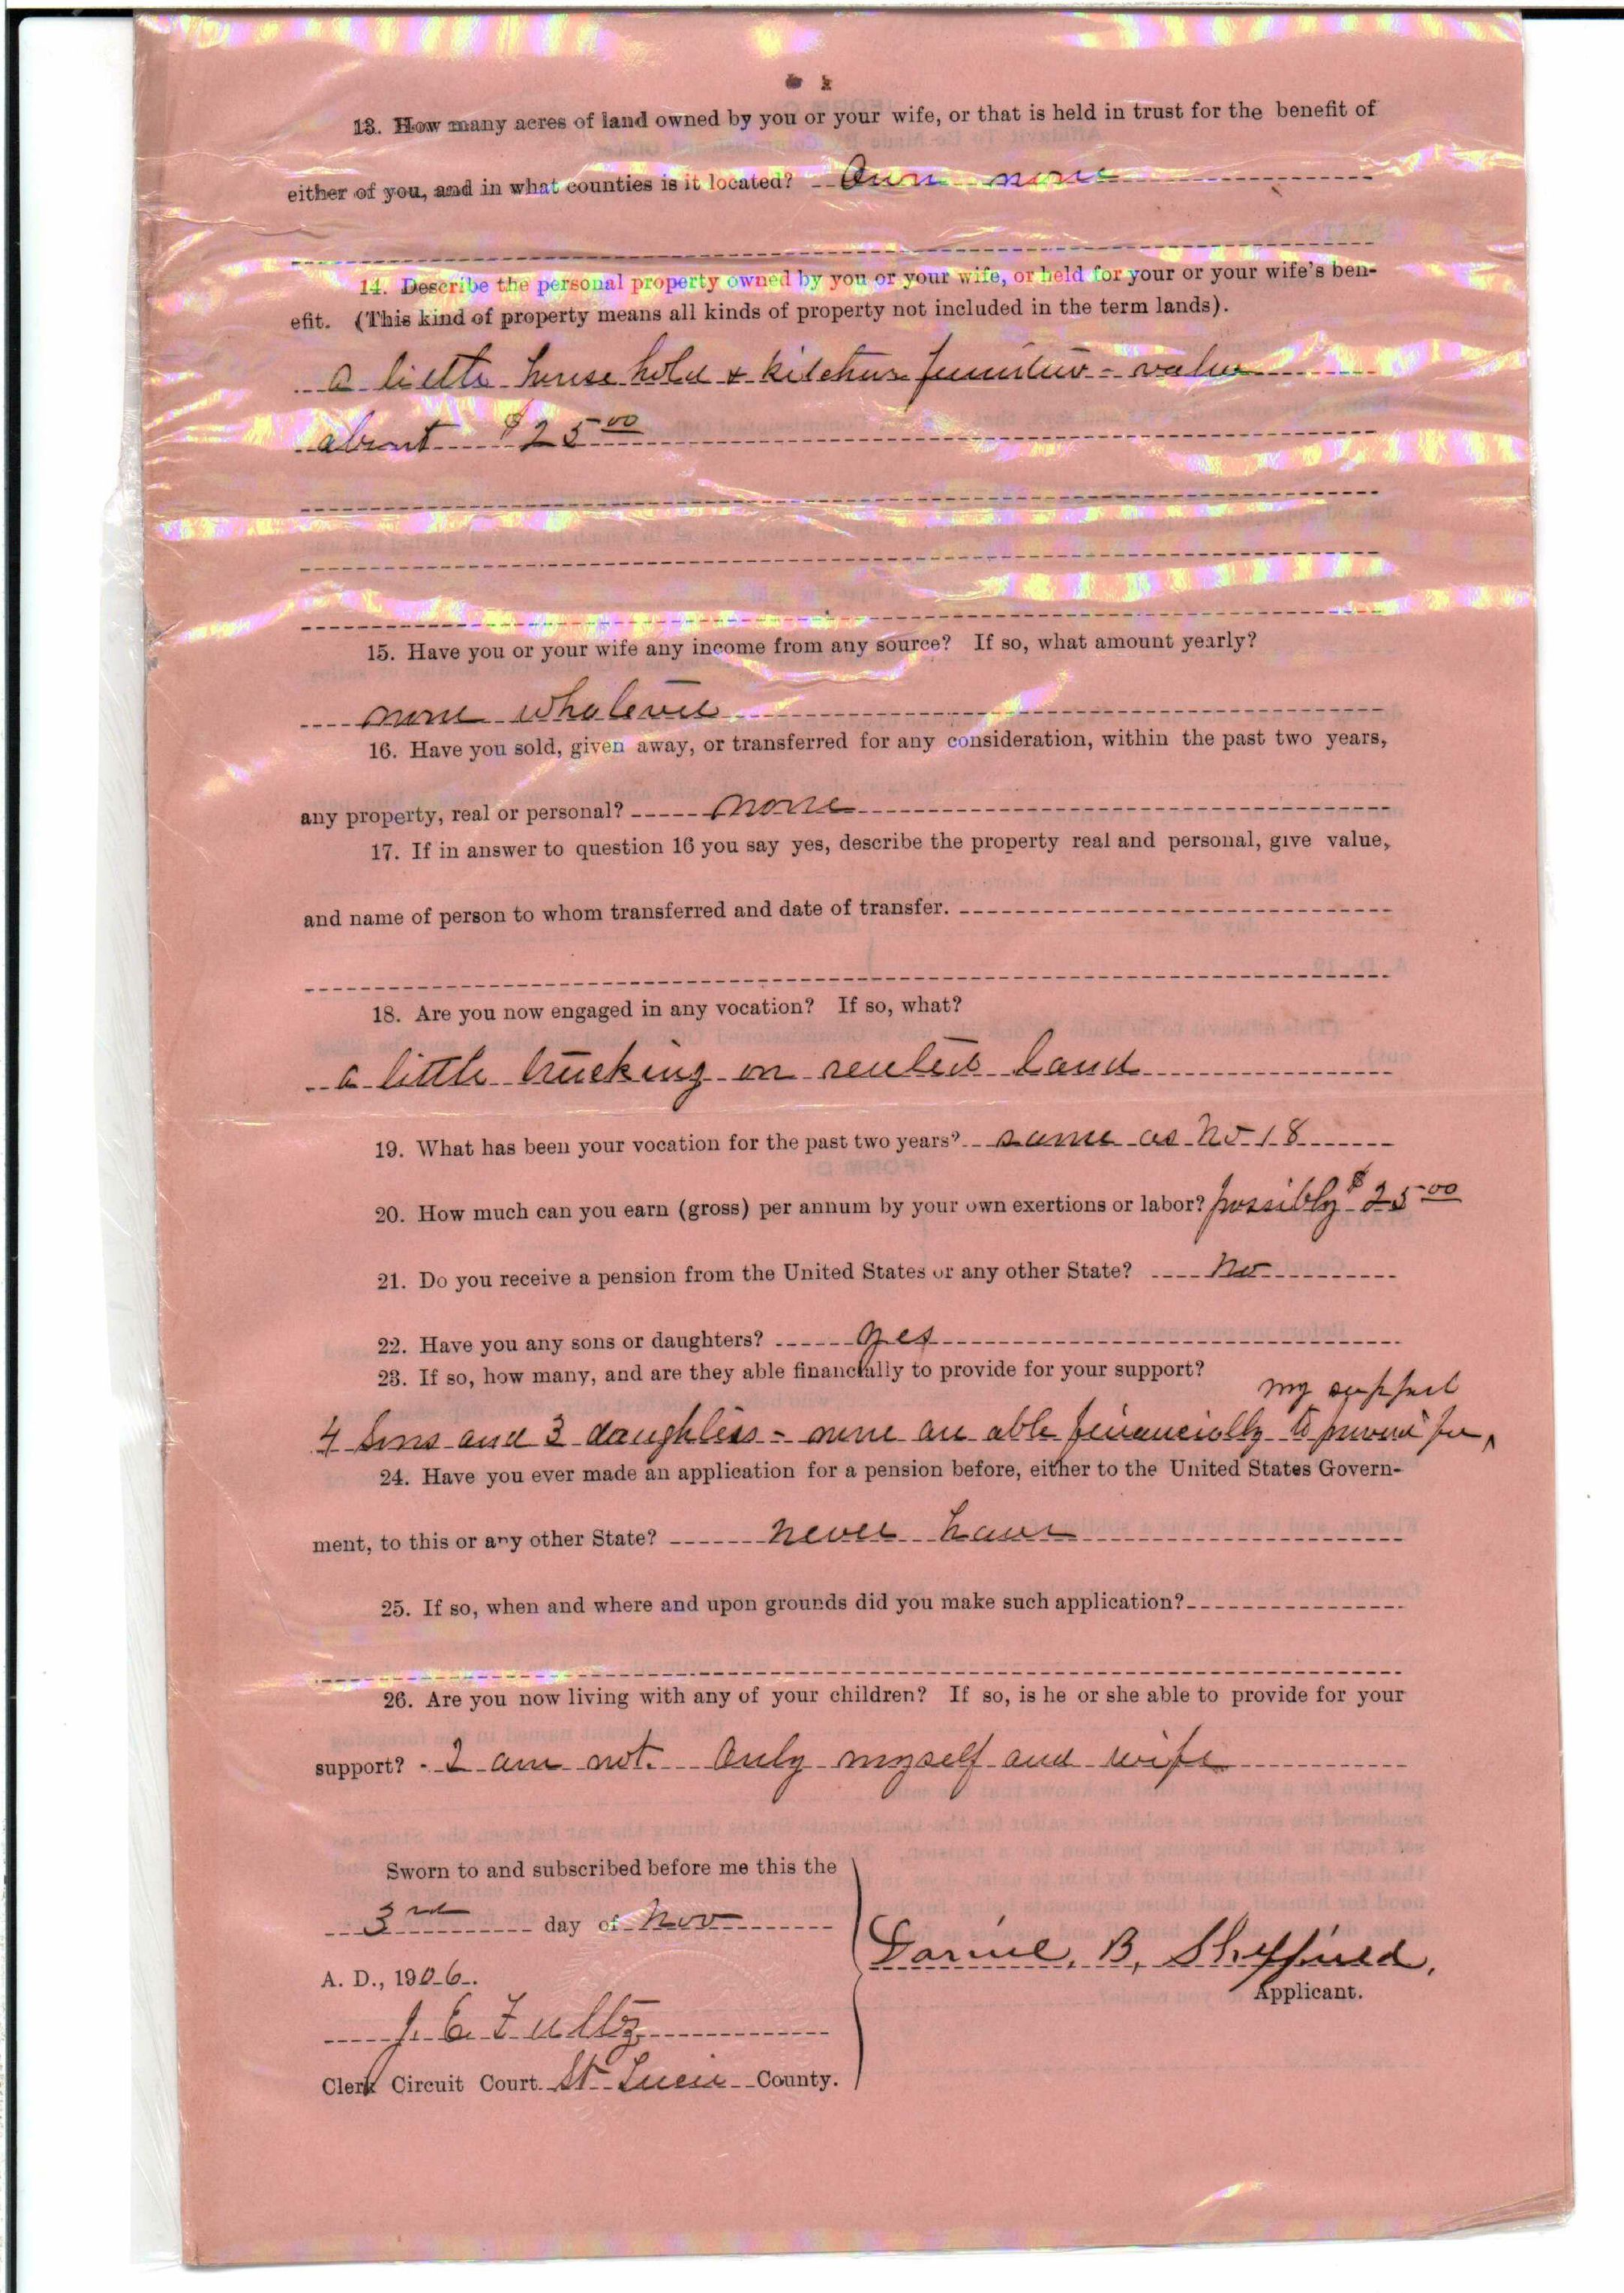 13. How many acres of land owned by you or your wife, or that is held in trust for the benefit of
either of you, and in what counties is it located? Own none
14. Describe the personal property owned by you or your wife, or held for your or your wife's ben-
efit. (This kind of property means all kinds of property not included in the term lands).
a little house hold & kitchen furniture - value
about $25 00
15. Have you or your wife any income from any source? If so, what amount yearly?
none whatever
16. Have you sold, given away, or transferred for any consideration, within the past two years,
any property, real or personal? none
17. If in answer to question 16 you say yes, describe the property real and personal, give value,
and name of person to whom transferred and date of transfer.
18. Are you now engaged in any vocation? If so, what?
a little trucking on rented land
19. What has been your vocation for the past two years? same as No 18
20. How much can you earn (gross) per annum by your own exertions or labor? possibly $25 00
21. Do you receive a pension from the United States or any other State? No
22. Have you any sons or daughters? yes
23. If so, how many, and are they able financially to provide for your support?
my support
4 Sons and 3 daughters - none are able financially to provide for
24. Have you ever made an application for a pension before, either to the United States Govern-
ment, to this or any other State? never have
25. If so, when and where and upon grounds did you make such application?
26. Are you now living with any of your children? If so, is he or she able to provide for your
support? I am not. Only myself and wife
Sworn to and subscribed before me this the
3rd day of Nov
A. D., 1906.
B, Sheffield,
Applicant.
J. E. Fultz
Clerk Circuit Court St Lucie County.